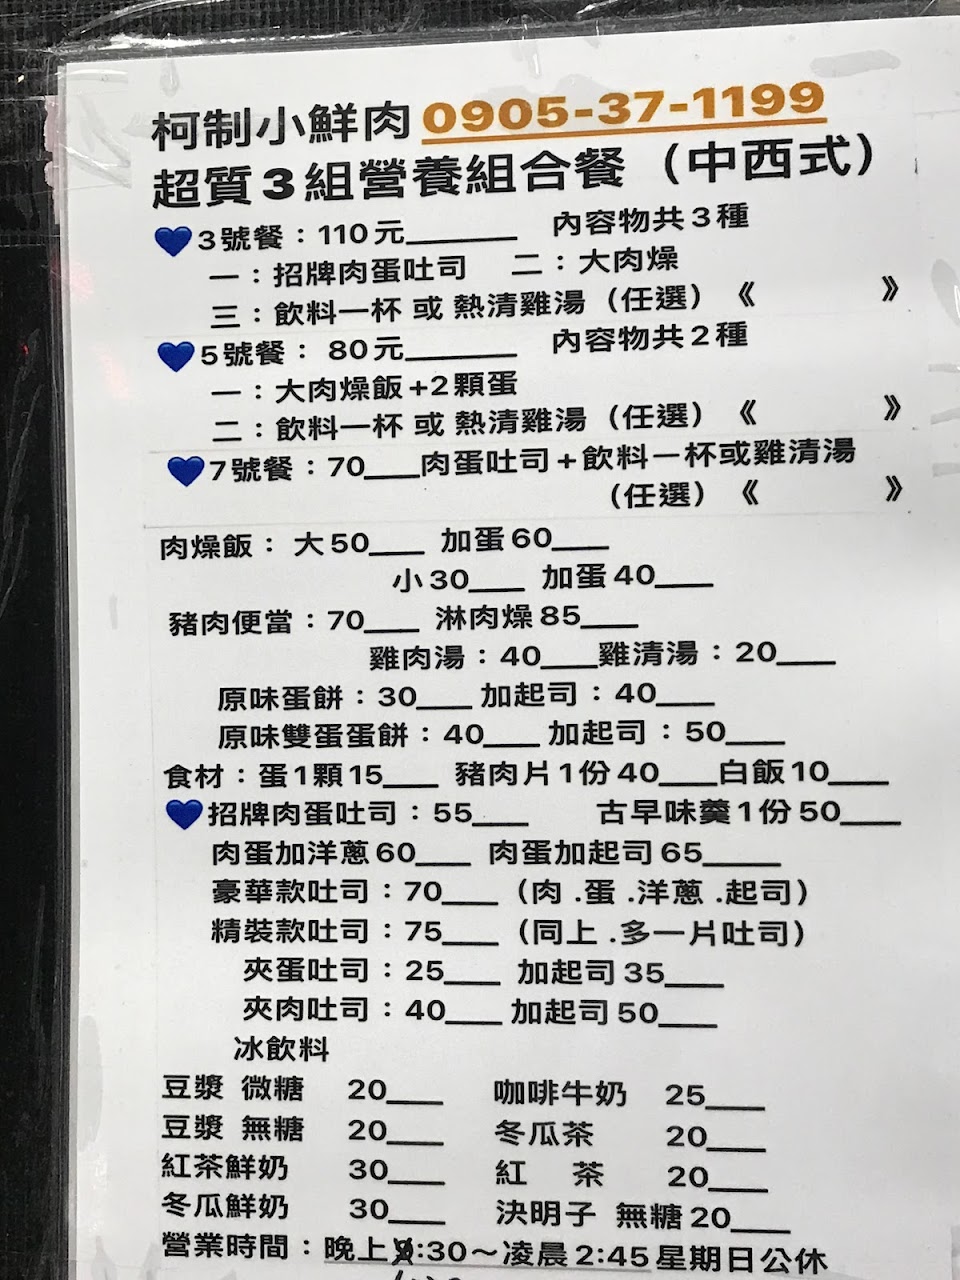 柯制小鮮肉 0905-37-1199
超質3組營養組合餐（中西式）
💙3號餐：110元______ 內容物共3種
一：招牌肉蛋吐司 二：大肉燥
三：飲料一杯 或 熱清雞湯（任選）《 》
💙5號餐： 80元______ 內容物共2種
一：大肉燥飯+2顆蛋
二：飲料一杯 或 熱清雞湯（任選）《 》
💙7號餐：70___肉蛋吐司+飲料一杯或雞清湯
（任選）《 》
肉燥飯： 大50___ 加蛋60___
小30___ 加蛋40___
豬肉便當：70___ 淋肉燥85___
雞肉湯：40___雞清湯：20___
原味蛋餅：30___加起司：40___
原味雙蛋蛋餅：40___加起司：50___
食材：蛋1顆15___ 豬肉片1份40___白飯10___
💙招牌肉蛋吐司：55___ 古早味羹1份50___
肉蛋加洋蔥60___ 肉蛋加起司65____
豪華款吐司：70___（肉.蛋.洋蔥.起司）
精裝款吐司：75___（同上.多一片吐司）
夾蛋吐司：25___ 加起司35___
夾肉吐司：40___加起司50___
冰飲料
豆漿 微糖 20___ 咖啡牛奶 25___
豆漿 無糖 20___ 冬瓜茶 20___
紅茶鮮奶 30___ 紅 茶 20___
冬瓜鮮奶 30___ 決明子 無糖20___
營業時間：晚上:30～凌晨2:45星期日公休